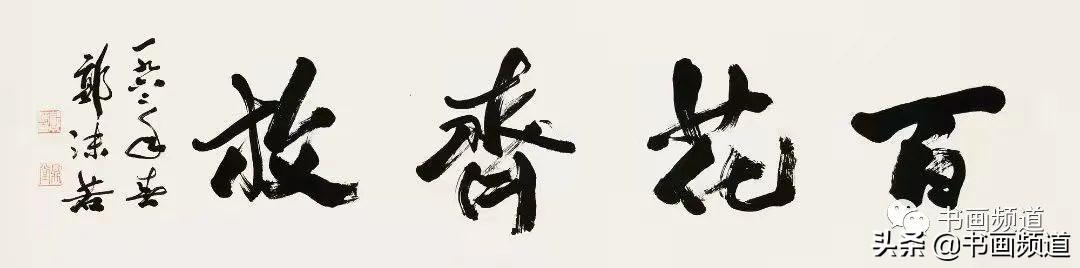 百花齊放
一九六二年春
郭沫若
书画频道
头条 @书画频道